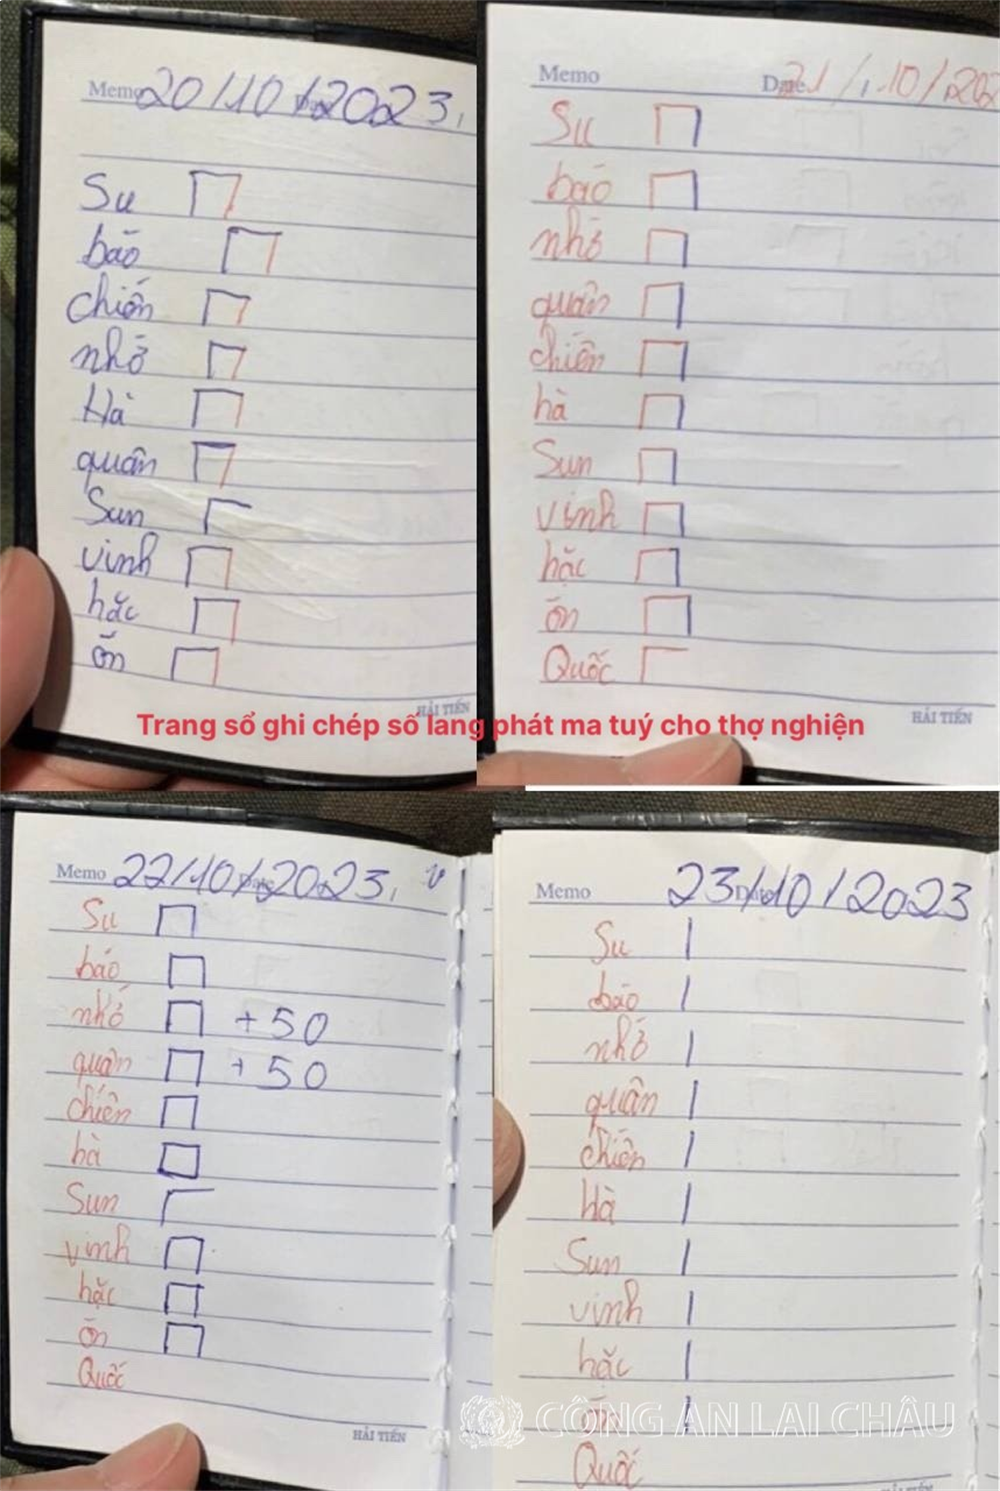 Memo 20/10/2023,
Su
báo
chiến
nhớ
Hà
quân
Sun
vinh
hắc
ổn
HẢI TIẾN
Memo Date 21/10/202
Su
báo
nhớ
quân
chiến
hà
Sun
vinh
hắc
ổn
Quốc
HẢI TIẾN
Trang sổ ghi chép số lang phát ma tuý cho thợ nghiện
Memo Date 22/10/2023,
Su
báo
nhớ +50
quân +50
chiến
hà
Sun
vinh
hắc
ổn
Quốc
HẢI TIẾN
Memo Date 23/10/2023
Su
báo
nhớ
quân
chiến
Hà
Sun
vinh
hắc
ổn
CÔNG AN LAI CHÂU
Quốc